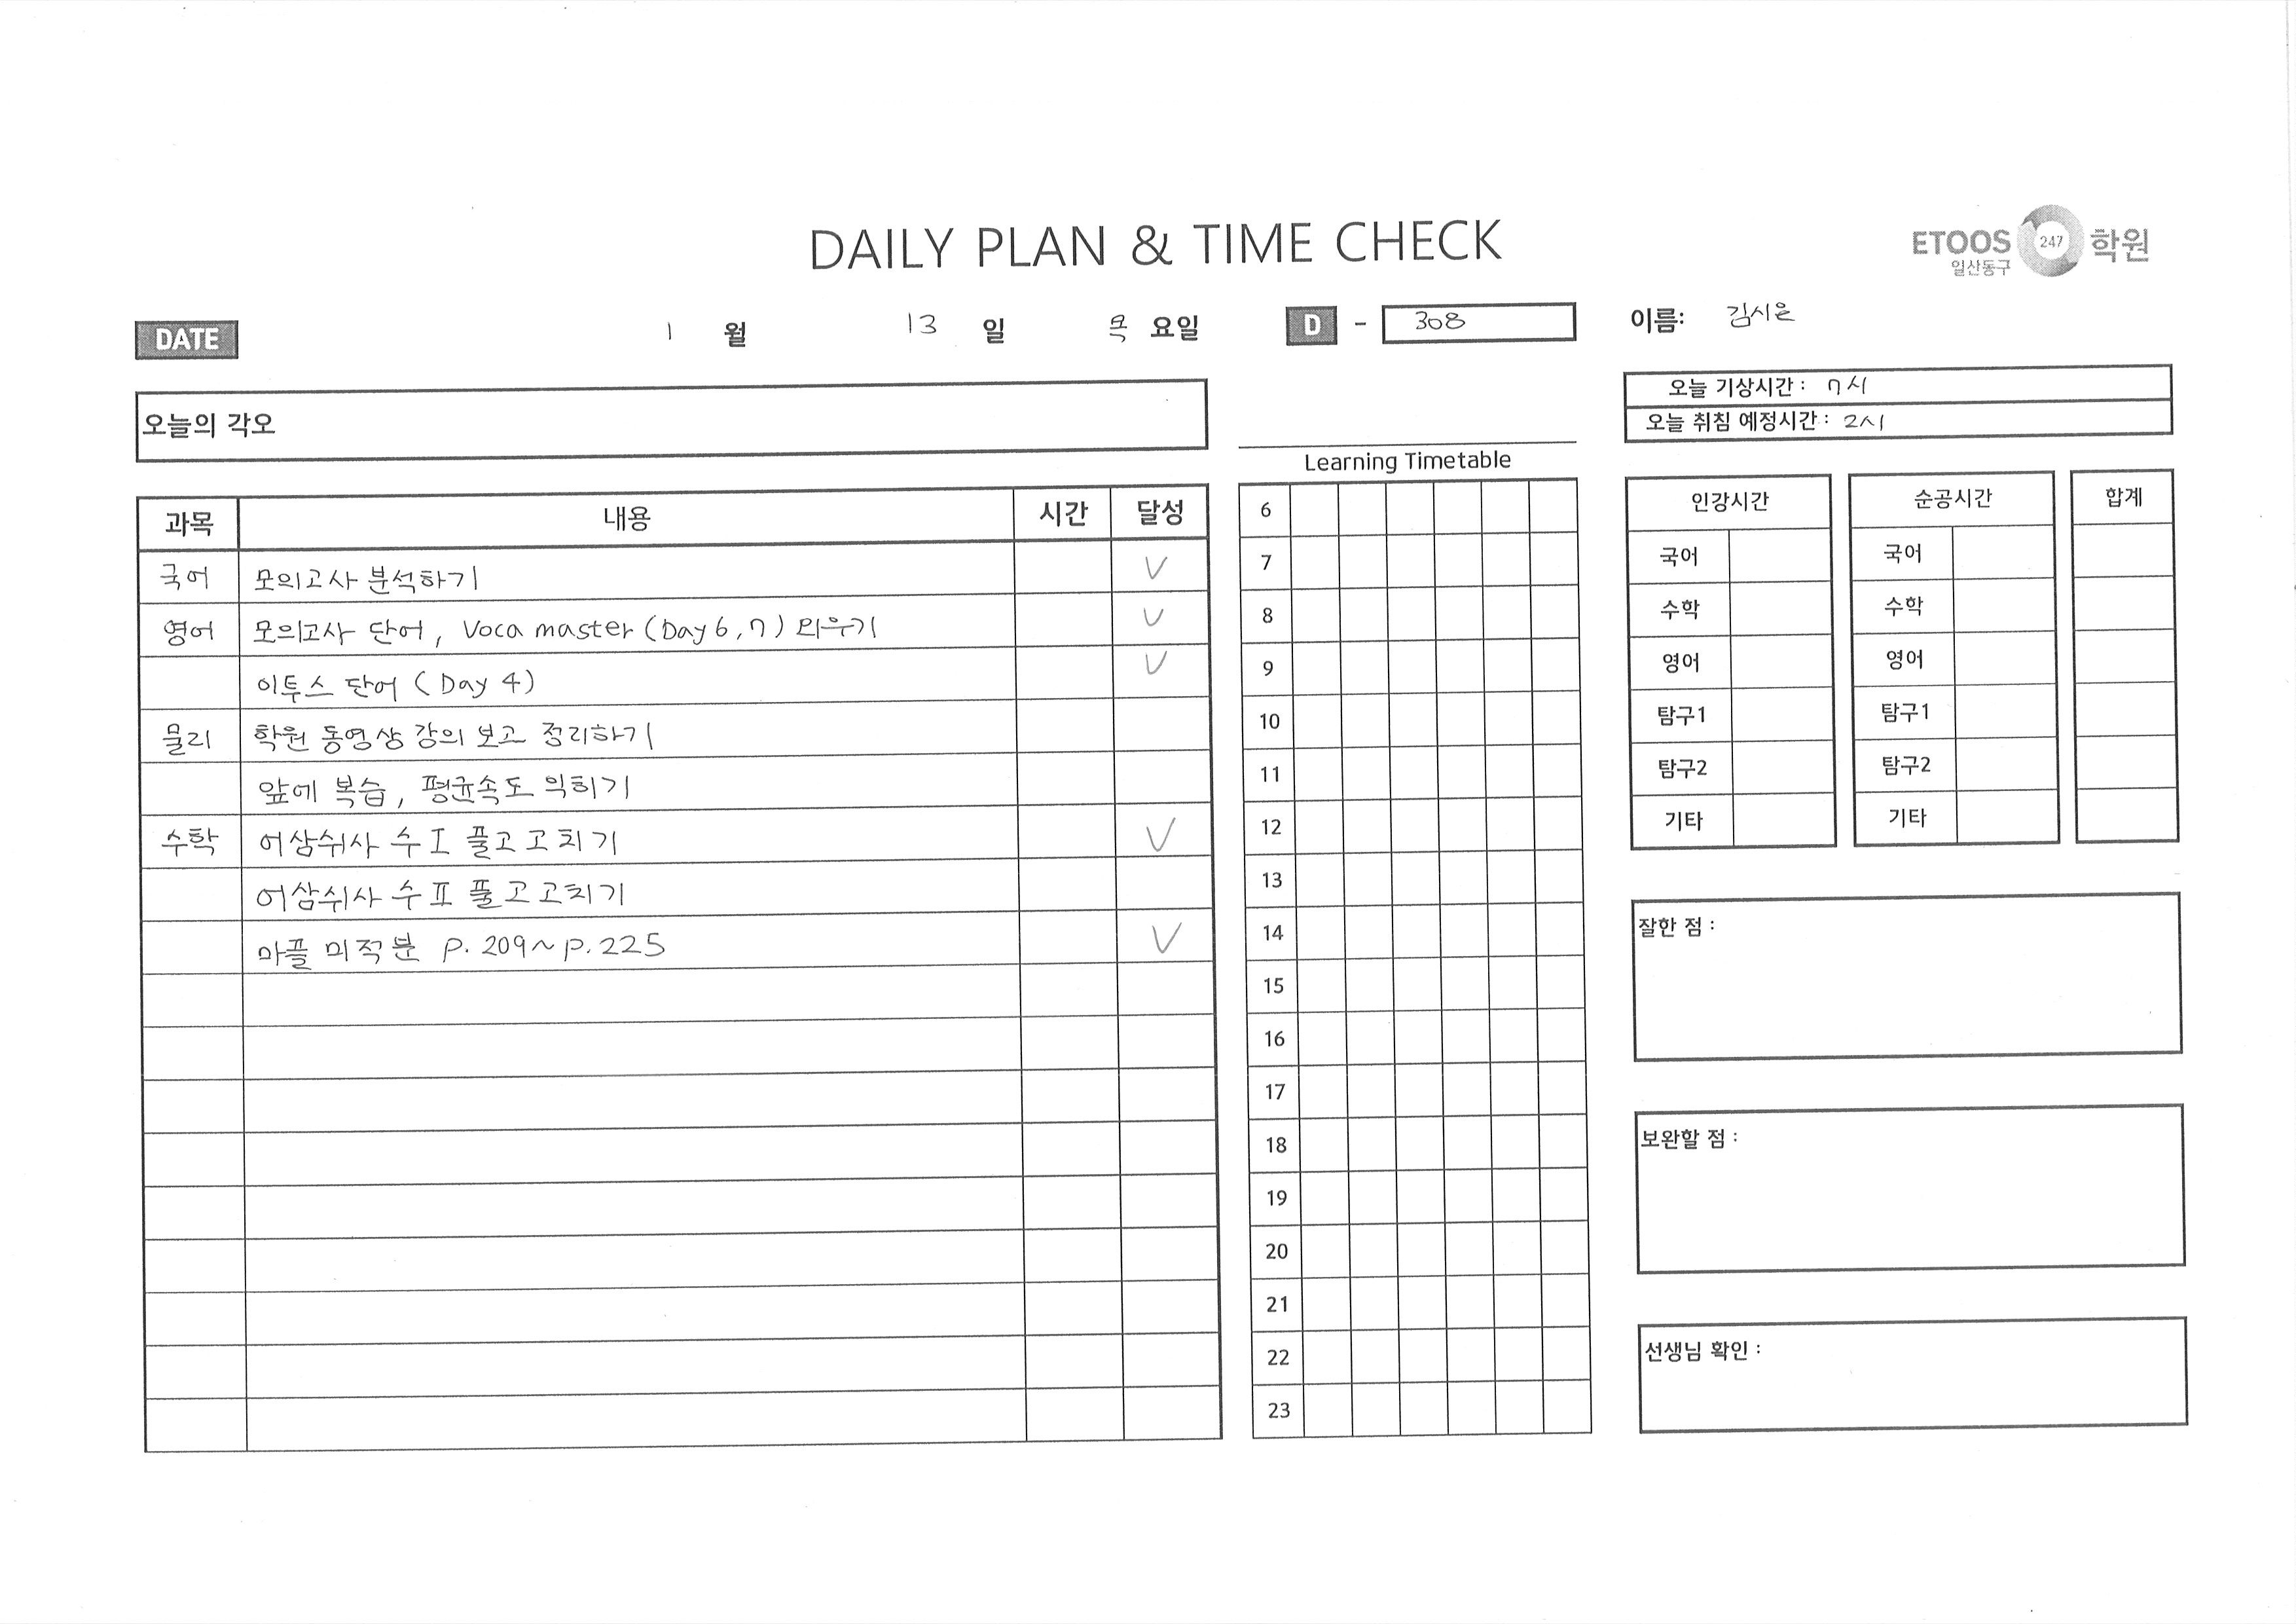 DAILY PLAN & TIME CHECK
ETOOS 247 학원
일산동구
DATE 1 월 13 일 목 요일 D - 308 이름: 김시은
오늘의 각오
오늘 기상시간 : 7시
오늘 취침 예정시간 : 2시
과목 내용 시간 달성
국어 모의고사 분석하기 V
영어 모의고사 단어, Voca master (Day 6, 7) 외우기 V
이투스 단어 ( Day 4) V
물리 학원 동영상 강의 보고 정리하기
앞에 복습, 평균속도 익히기
수학 어삼쉬사 수 I 풀고 고치기 V
어삼쉬사 수 II 풀고 고치기
마플 미적분 p. 209~p.225 V
Learning Timetable
6
7
8
9
10
11
12
13
14
15
16
17
18
19
20
21
22
23
인강시간 순공시간 합계
국어 국어
수학 수학
영어 영어
탐구1 탐구1
탐구2 탐구2
기타 기타
잘한 점 :
보완할 점 :
선생님 확인 :